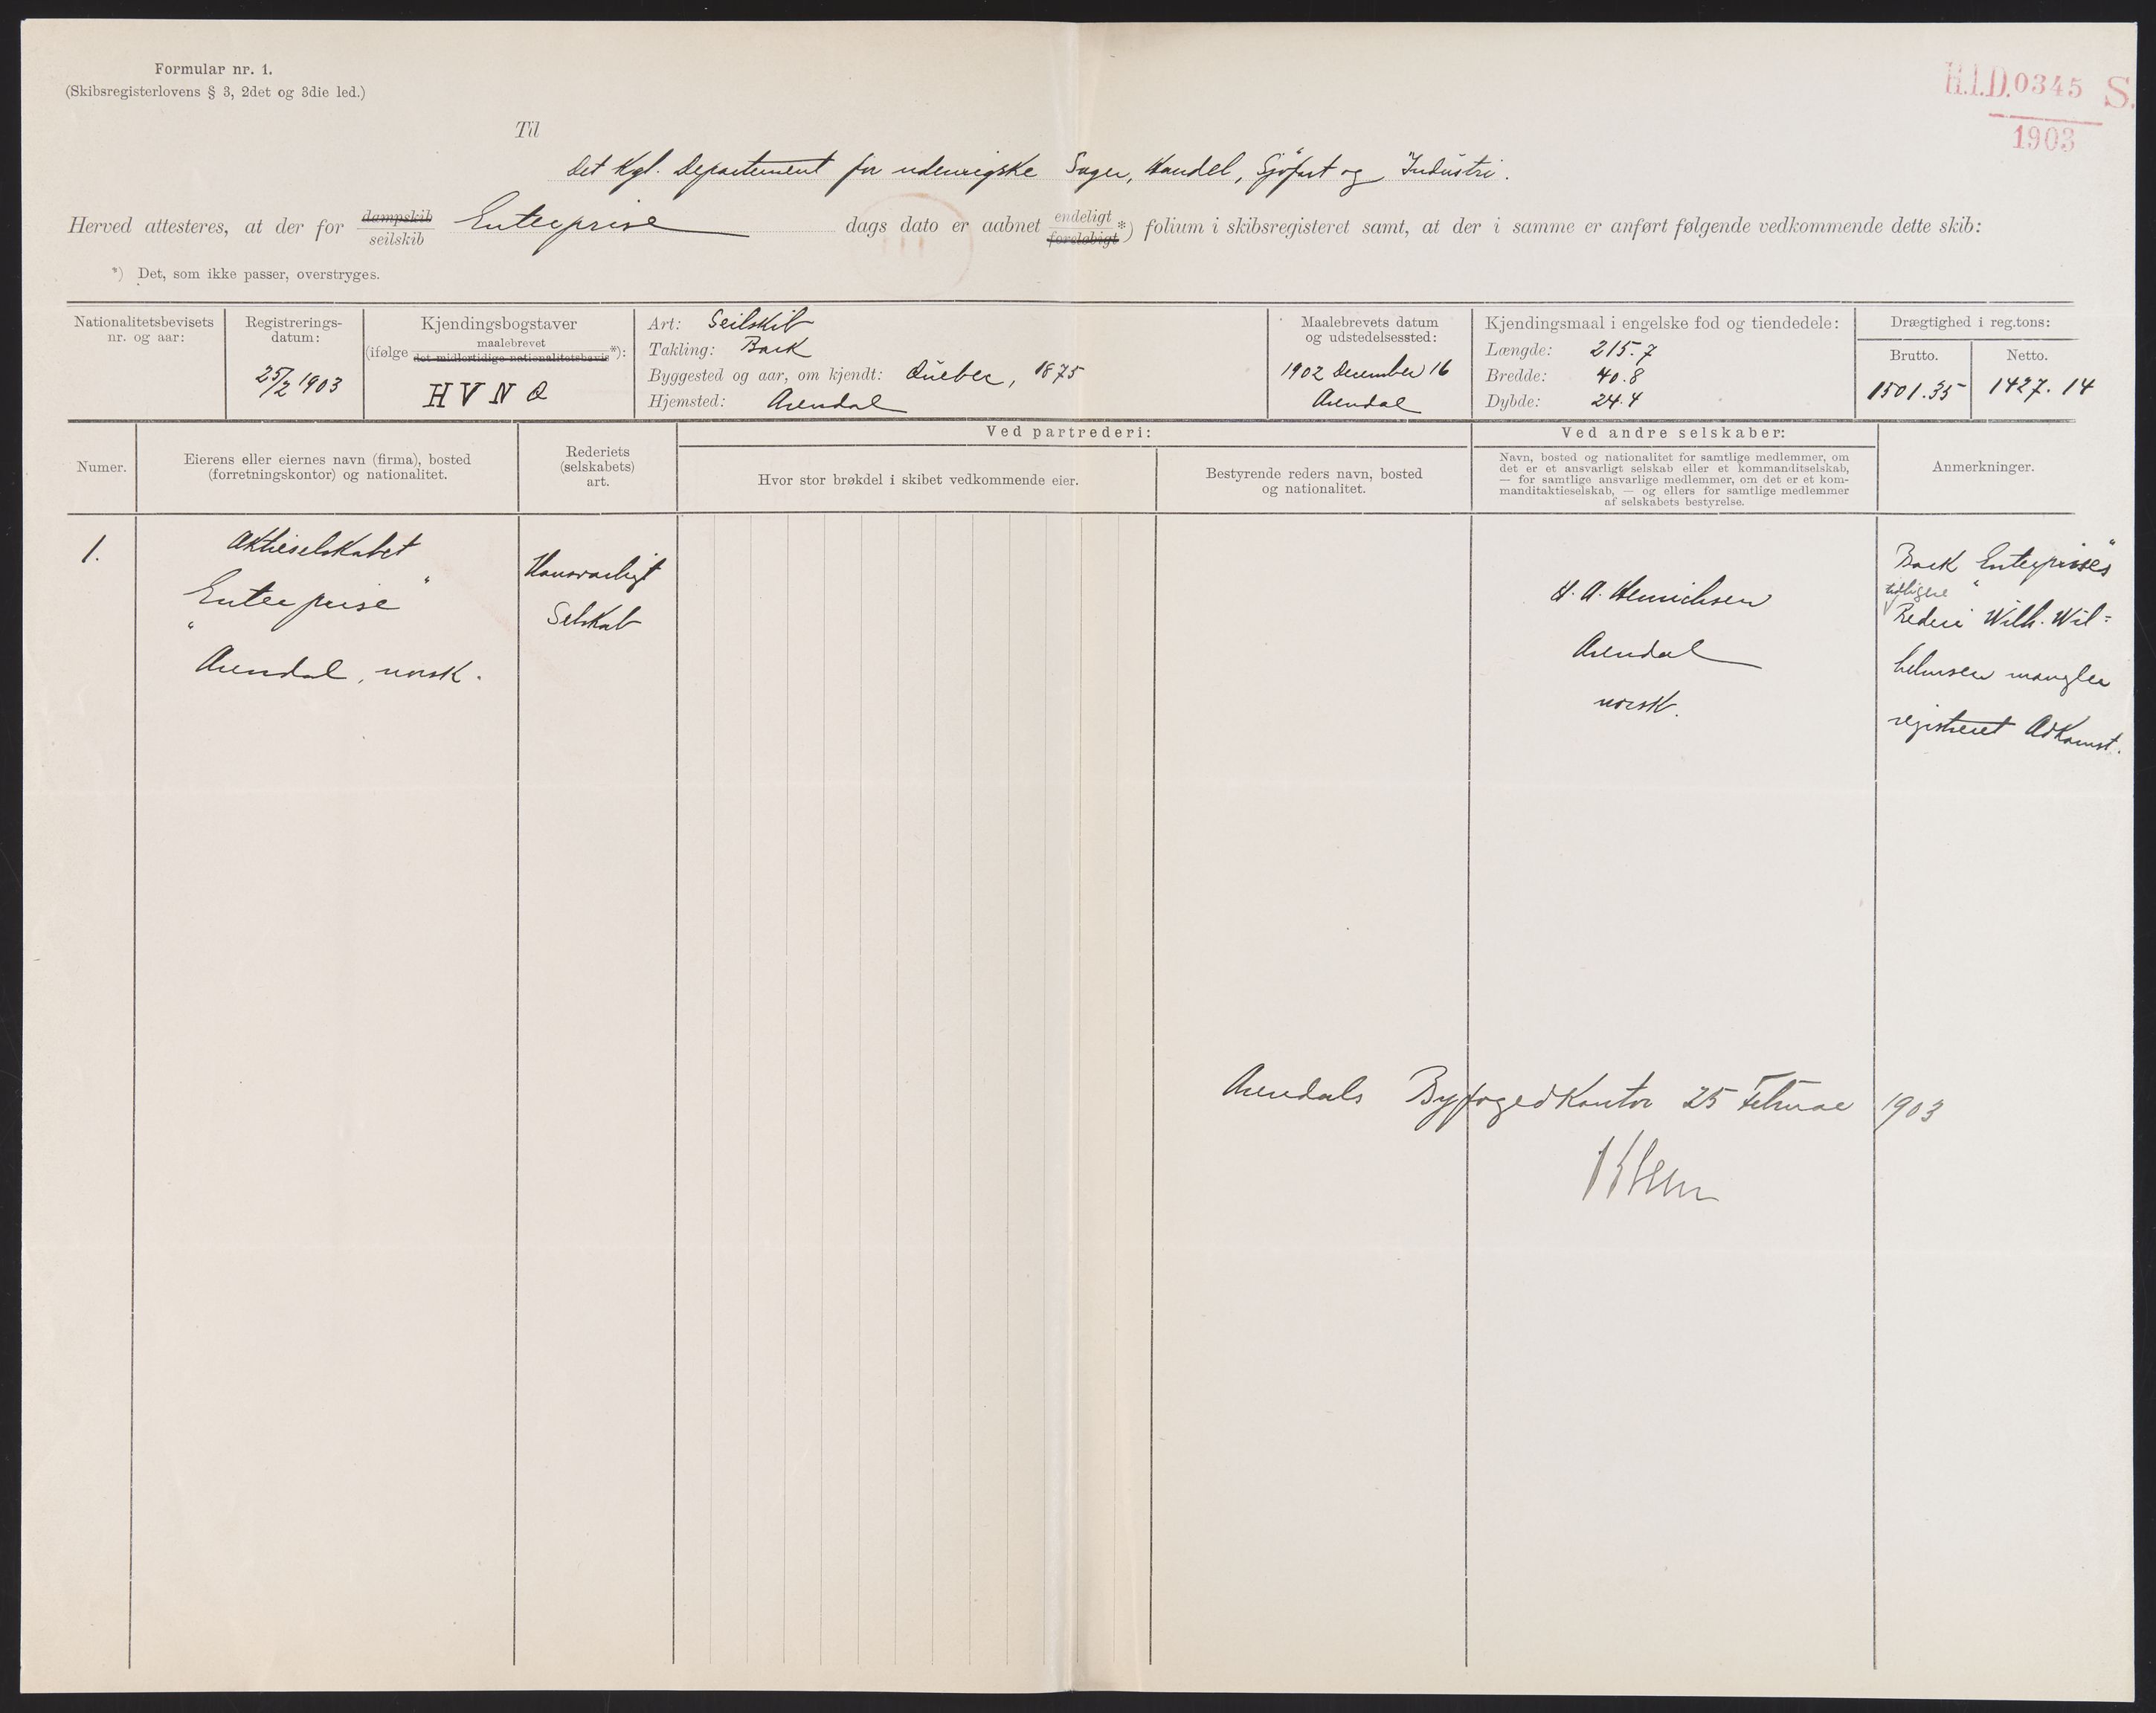 Formular nr. 1.
(Skibsregisterlovens § 3, 2det og 3die led.)
H.I.D. 0345 S.
1903
Til
Det Kgl. Departement for udenrigske Sager, Handel, Sjöfart og Industri.
Herved attesteres, at der for dampskib seilskib Enterprise dags dato er aabnet endeligt foreløbigt *) folium i skibsregisteret samt, at der i samme er anført følgende vedkommende dette skib:
*) Det, som ikke passer, overstryges.
Nationalitetsbevisets nr. og aar:
Registrerings-datum:
25/2 1903
Kjendingsbogstaver
(ifølge maalebrevet det midlertidige nationalitetsbevis *):
H V N Q
Art: Seilskib
Takling: Bark
Byggested og aar, om kjendt: Quebec, 1875
Hjemsted: Arendal
Maalebrevets datum
og udstedelsessted:
1902 December 16
Arendal
Kjendingsmaal i engelske fod og tiendedele:
Længde: 215.7
Bredde: 40.8
Dybde: 24.4
Drægtighed i reg.tons:
Brutto. Netto.
1501.35 1427.14
Numer.
Eierens eller eiernes navn (firma), bosted
(forretningskontor) og nationalitet.
Rederiets
(selskabets)
art.
Ved partrederi:
Hvor stor brøkdel i skibet vedkommende eier.
Bestyrende reders navn, bosted
og nationalitet.
Ved andre selskaber:
Navn, bosted og nationalitet for samtlige medlemmer, om
det er et ansvarligt selskab eller et kommanditselskab,
— for samtlige ansvarlige medlemmer, om det er et kom-
manditaktieselskab, — og ellers for samtlige medlemmer
af selskabets bestyrelse.
Anmerkninger.
1.
Aktieselskabet
"Enterprise"
Arendal, norsk.
Uansvarligt
Selskab
H. A. Henrichsen
Arendal
norsk.
Bark "Enterprises"
tidligere
Reder Wilh. Wil=
helmsen mangler
registreret Adkomst.
Arendals Byfogedkontor 25 Februar 1903